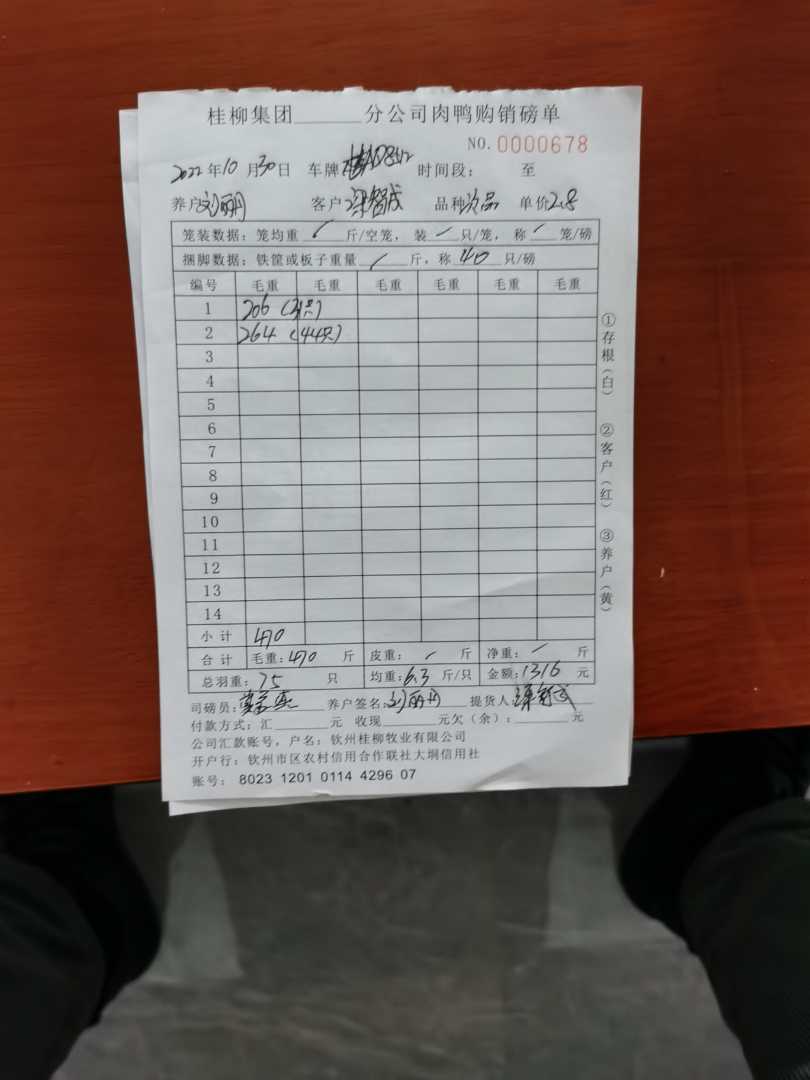 桂柳集团______分公司肉鸭购销磅单
NO. 0000678
2022年10月30日 车牌 时间段： 至
养户刘丽丹 客户梁智成 品种次品 单价2.8
笼装数据：笼均重 / 斤/空笼，装 / 只/笼，称 / 笼/磅
捆脚数据：铁筐或板子重量 / 斤，称 40 只/磅
编号 毛重 毛重 毛重 毛重 毛重 毛重
1 206 (31只)
2 264 (44只)
3
4
5
6
7
8
9
10
11
12
13
14
小计 470
合计 毛重：470 斤 皮重： / 斤 净重： / 斤
总羽重：75 只 均重：6.3 斤/只 金额：1316 元
司磅员： 养户签名：刘丽丹 提货人：梁智成
付款方式：汇______元 收现______元欠（余）：______元
公司汇款账号，户名：钦州桂柳牧业有限公司
开户行：钦州市区农村信用合作联社大垌信用社
账号： 8023 1201 0114 4296 07
①存根（白） ②客户（红） ③养户（黄）